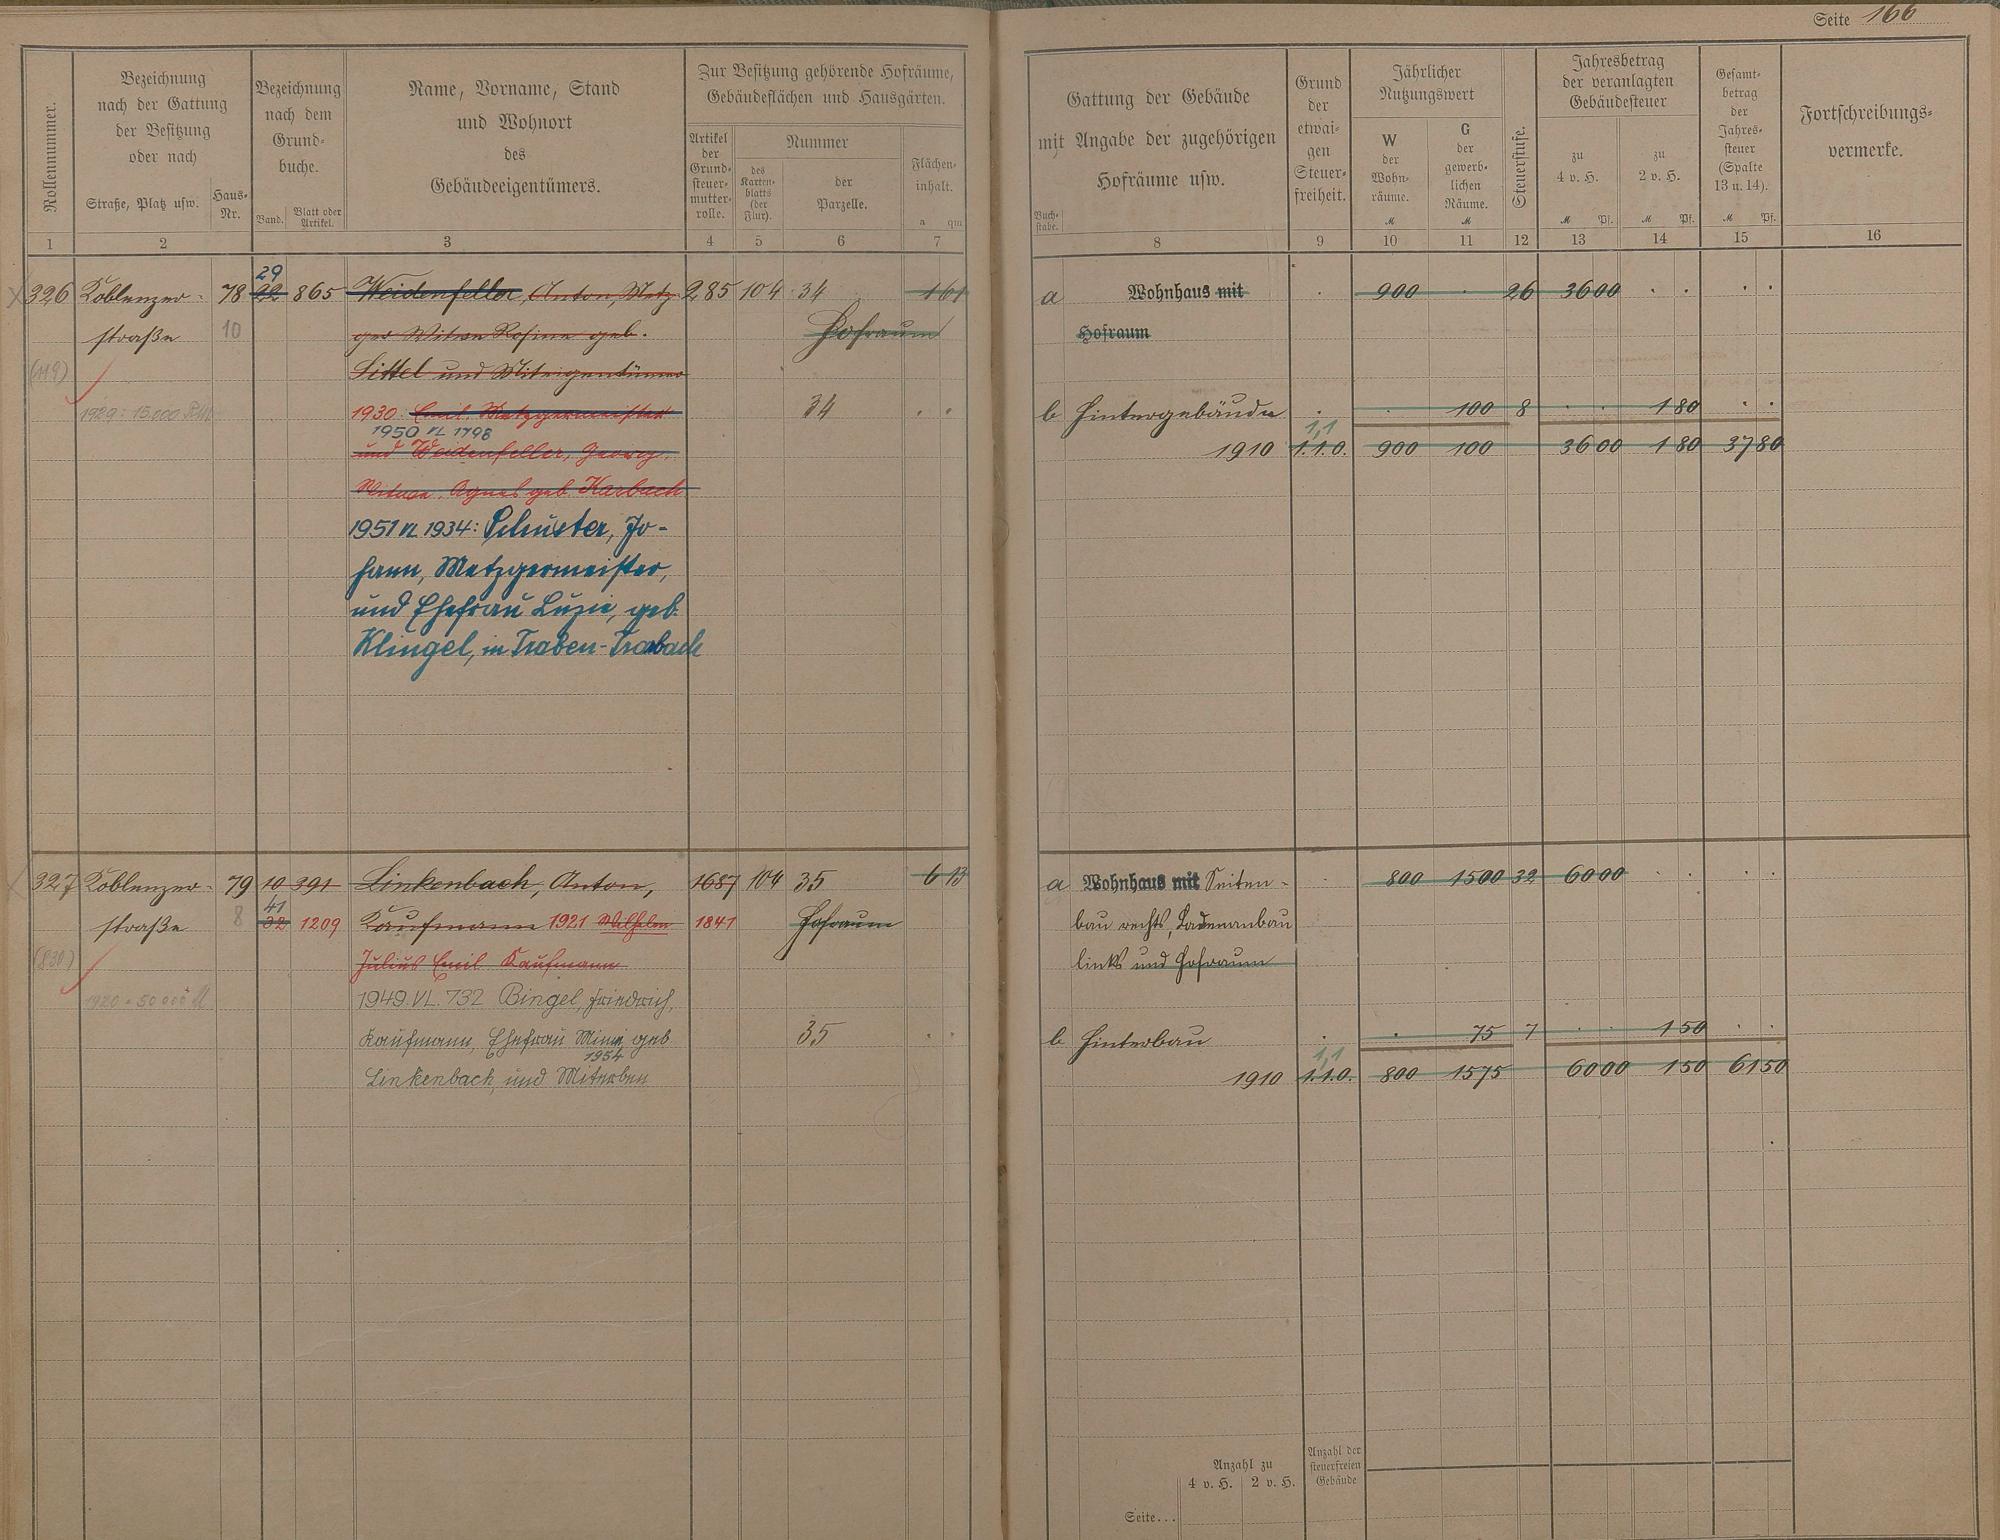 Seite 166
Rollennummer.
Bezeichnung
nach der Gattung
der Besitzung
oder nach
Straße, Platz usw.
Haus-
Nr.
Bezeichnung
nach dem
Grund-
buche.
Band.
Blatt oder
Artikel.
Name, Vorname, Stand
und Wohnort
des
Gebäudeeigentümers.
Zur Besitzung gehörende Hofräume,
Gebäudeflächen und Hausgärten.
Artikel
der
Grund-
steuer-
mutter-
rolle.
Nummer
des
Karten-
blatts
(der
Flur).
der
Parzelle.
Flächen-
inhalt.
a qm
Gattung der Gebäude
mit Angabe der zugehörigen
Hofräume usw.
Buch-
stabe.
Grund
der
etwai-
gen
Steuer-
freiheit.
Jährlicher
Nutzungswert
W
der
Wohn-
räume.
M
G
der
gewerb-
lichen
Räume.
M
Steuerstufe.
Jahresbetrag
der veranlagten
Gebäudesteuer
zu
4 v. H.
M Pf.
zu
2 v. H.
M Pf.
Gesamt-
betrag
der
Jahres-
steuer
(Spalte
13 u. 14).
M Pf.
Fortschreibungs-
vermerke.
1 2 3 4 5 6 7 8 9 10 11 12 13 14 15 16
29
326 Koblenzer- 78 22 865 Weidenfeller, Anton, Metz- 285 104 34 1 61 a Wohnhaus mit 900 26 36 00
straße 10 ger Witwe Rosine geb. Hofraum Hofraum
(119) Sittel und Miteigentümer
1929: 15000 RM 1930: Emil Metzgermeister 34 b Hintergebäude 100 8 1 80
1950 VL 1798
und Weidenfeller, Georg, 1910 1.1.0. 1,1 900 100 36 00 1 80 37 80
Witwe, Agnes geb. Karbach
1951 VL 1934: Schuster, Jo-
hann, Metzgermeister,
und Ehefrau Luzie, geb.
Klingel, in Traben-Trarbach
327 Koblenzer- 79 10 391 Linkenbach, Anton, 1687 104 35 6 13 a Wohnhaus mit Seiten- 800 1500 32 60 00
41
straße 8 32 1209 Kaufmann 1921 Wilhelm 1841 Hofraum bau rechts, Ladenanbau
(830) Julius Emil Kaufmann links und Hofraum
1949 VL. 732 Bingel, Friedrich,
Kaufmann, Ehefrau Minna geb 35 b Hinterbau 75 7 1 50
1954
Linkenbach und Miterben 1910 1.1.0. 1,1 800 1575 60 00 1 50 61 50
Anzahl zu
4 v. H. 2 v. H.
Anzahl der
steuerfreien
Gebäude
Seite...